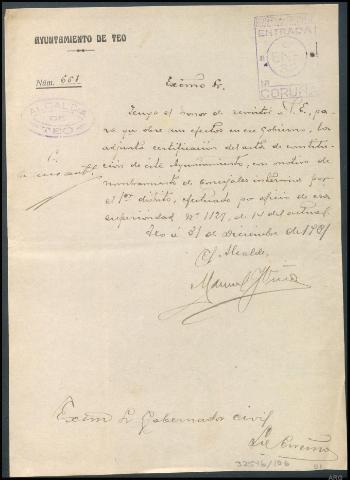 AYUNTAMIENTO DE TEO
Núm. 661
ENTRADA
ENE
CORUÑA
ALCALDIA
DE
TEO
Excmo Sr.
Tengo el honor de remitir a V.E., pa-
ra que obre sus efectos en ese Gobierno, la
adjunta certificación del acta de constitu-
ción de este Ayuntamiento, con motivo de
nombramiento de concejales interinos por
el 1er distrito, efectuado por oficio de esa
superioridad nº 1127, de 14 del actual.
Teo a 31 de Diciembre de
El Alcalde,
Manuel
Excmo Sr Gobernador civil
La Coruña
32546/106